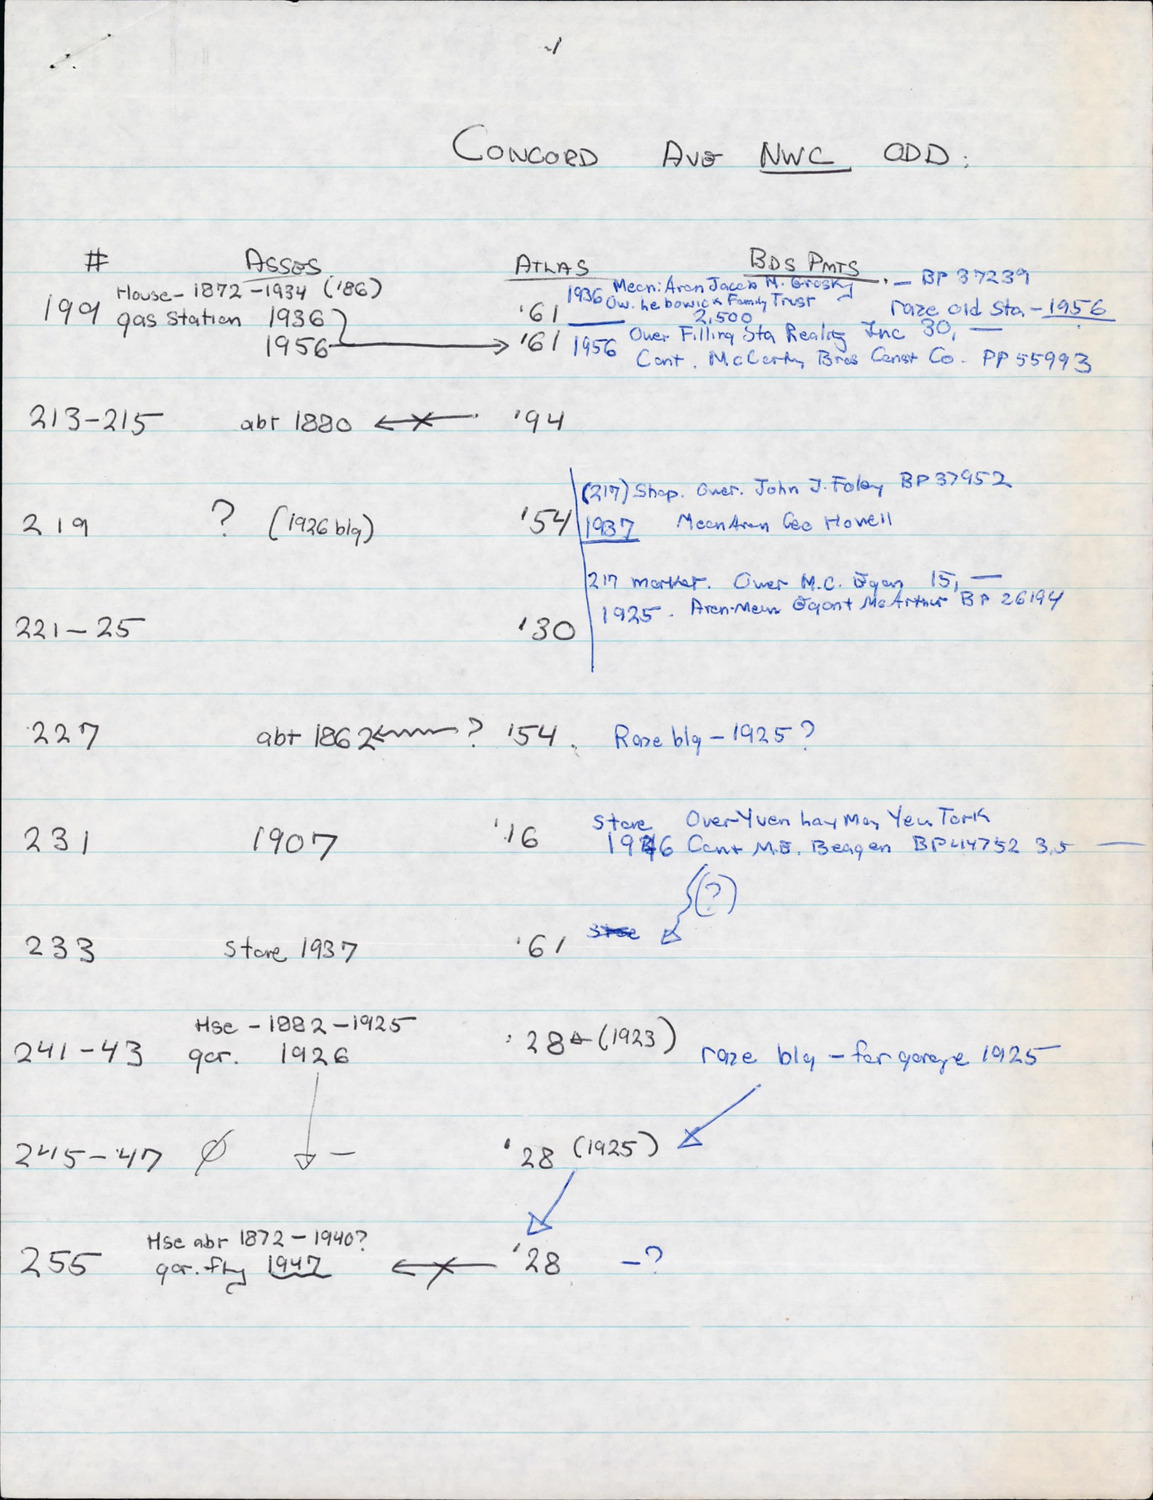 CONCORD AVE NWC ODD:
# ASSES ATLAS BDS PMTS
House - 1872 - 1934 ('86) 1936 Mecn: Aron Jacob M. Grosky - BP 37239
199 gas station 1936 '61 Ow. Lebowick Family Trust 2,500 raze old sta - 1956
1956 '61 1956 Over Filling Sta Realty Inc 30, —
Cont. McCarthy Bros Const Co. PP 55993
213-215 abt 1880 '94
(217) Shop. Over. John J. Foley BP 37952
219 ? (1926 blg) '54 1937 Mecn Aren Geo Howell
217 market. Over M.C. 15, —
221-25 '30 1925. Aren-Mecn McArthur BP 26194
227 abt 1862 ? '54. Raze blg - 1925 ?
Store Over Yuen Lay Moy Yeu Tork
231 1907 '16 19 6 Cont M.E. Beagen BP 44752 3,5 —
(?)
233 Store 1937 '61
Hse - 1882 - 1925
241-43 gar. 1926 '28 (1923) raze blg - for garage 1925
245-47 Ø - '28 (1925)
Hse abt 1872 - 1940?
255 gar. 1947 '28 -?